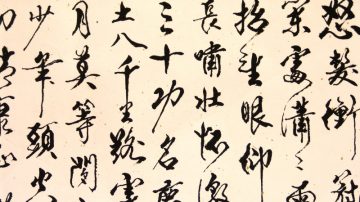 怒髮衝冠
闌處瀟瀟雨
抬望眼仰
長嘯壯懷激
三十功名塵
土八千里路雲
月莫等閒
少年頭空